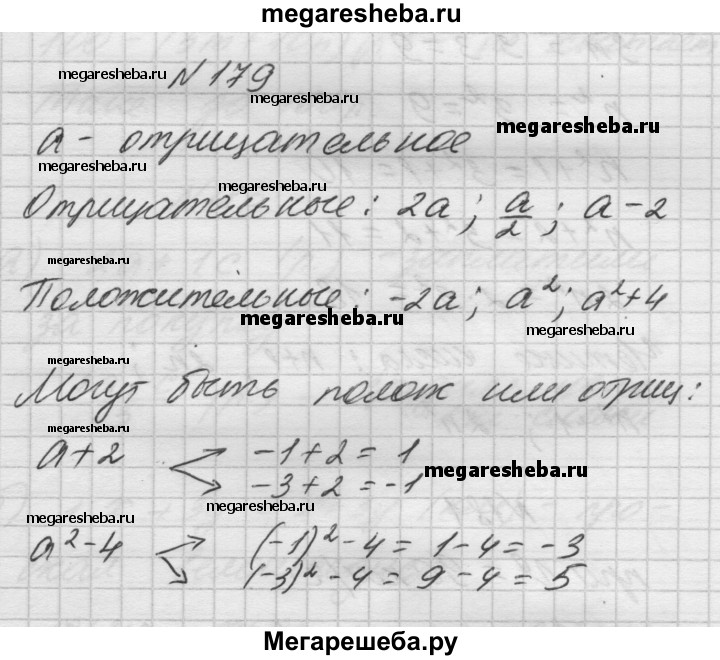 megaresheba.ru
N 179
megaresheba.ru
megaresheba.ru
а - отрицательное
megaresheba.ru
megaresheba.ru
megaresheba.ru
Отрицательные: 2а; а/2; а-2
Положительные: -2а; а²; а²+4
megaresheba.ru
megaresheba.ru
megaresheba.ru
Могут быть полож или отриц:
megaresheba.ru
а+2 -1+2=1
-3+2=-1
megaresheba.ru
megaresheba.ru
megaresheba.ru
а²-4 (-1)²-4=1-4=-3
(-3)²-4=9-4=5
Мегарешеба.ру